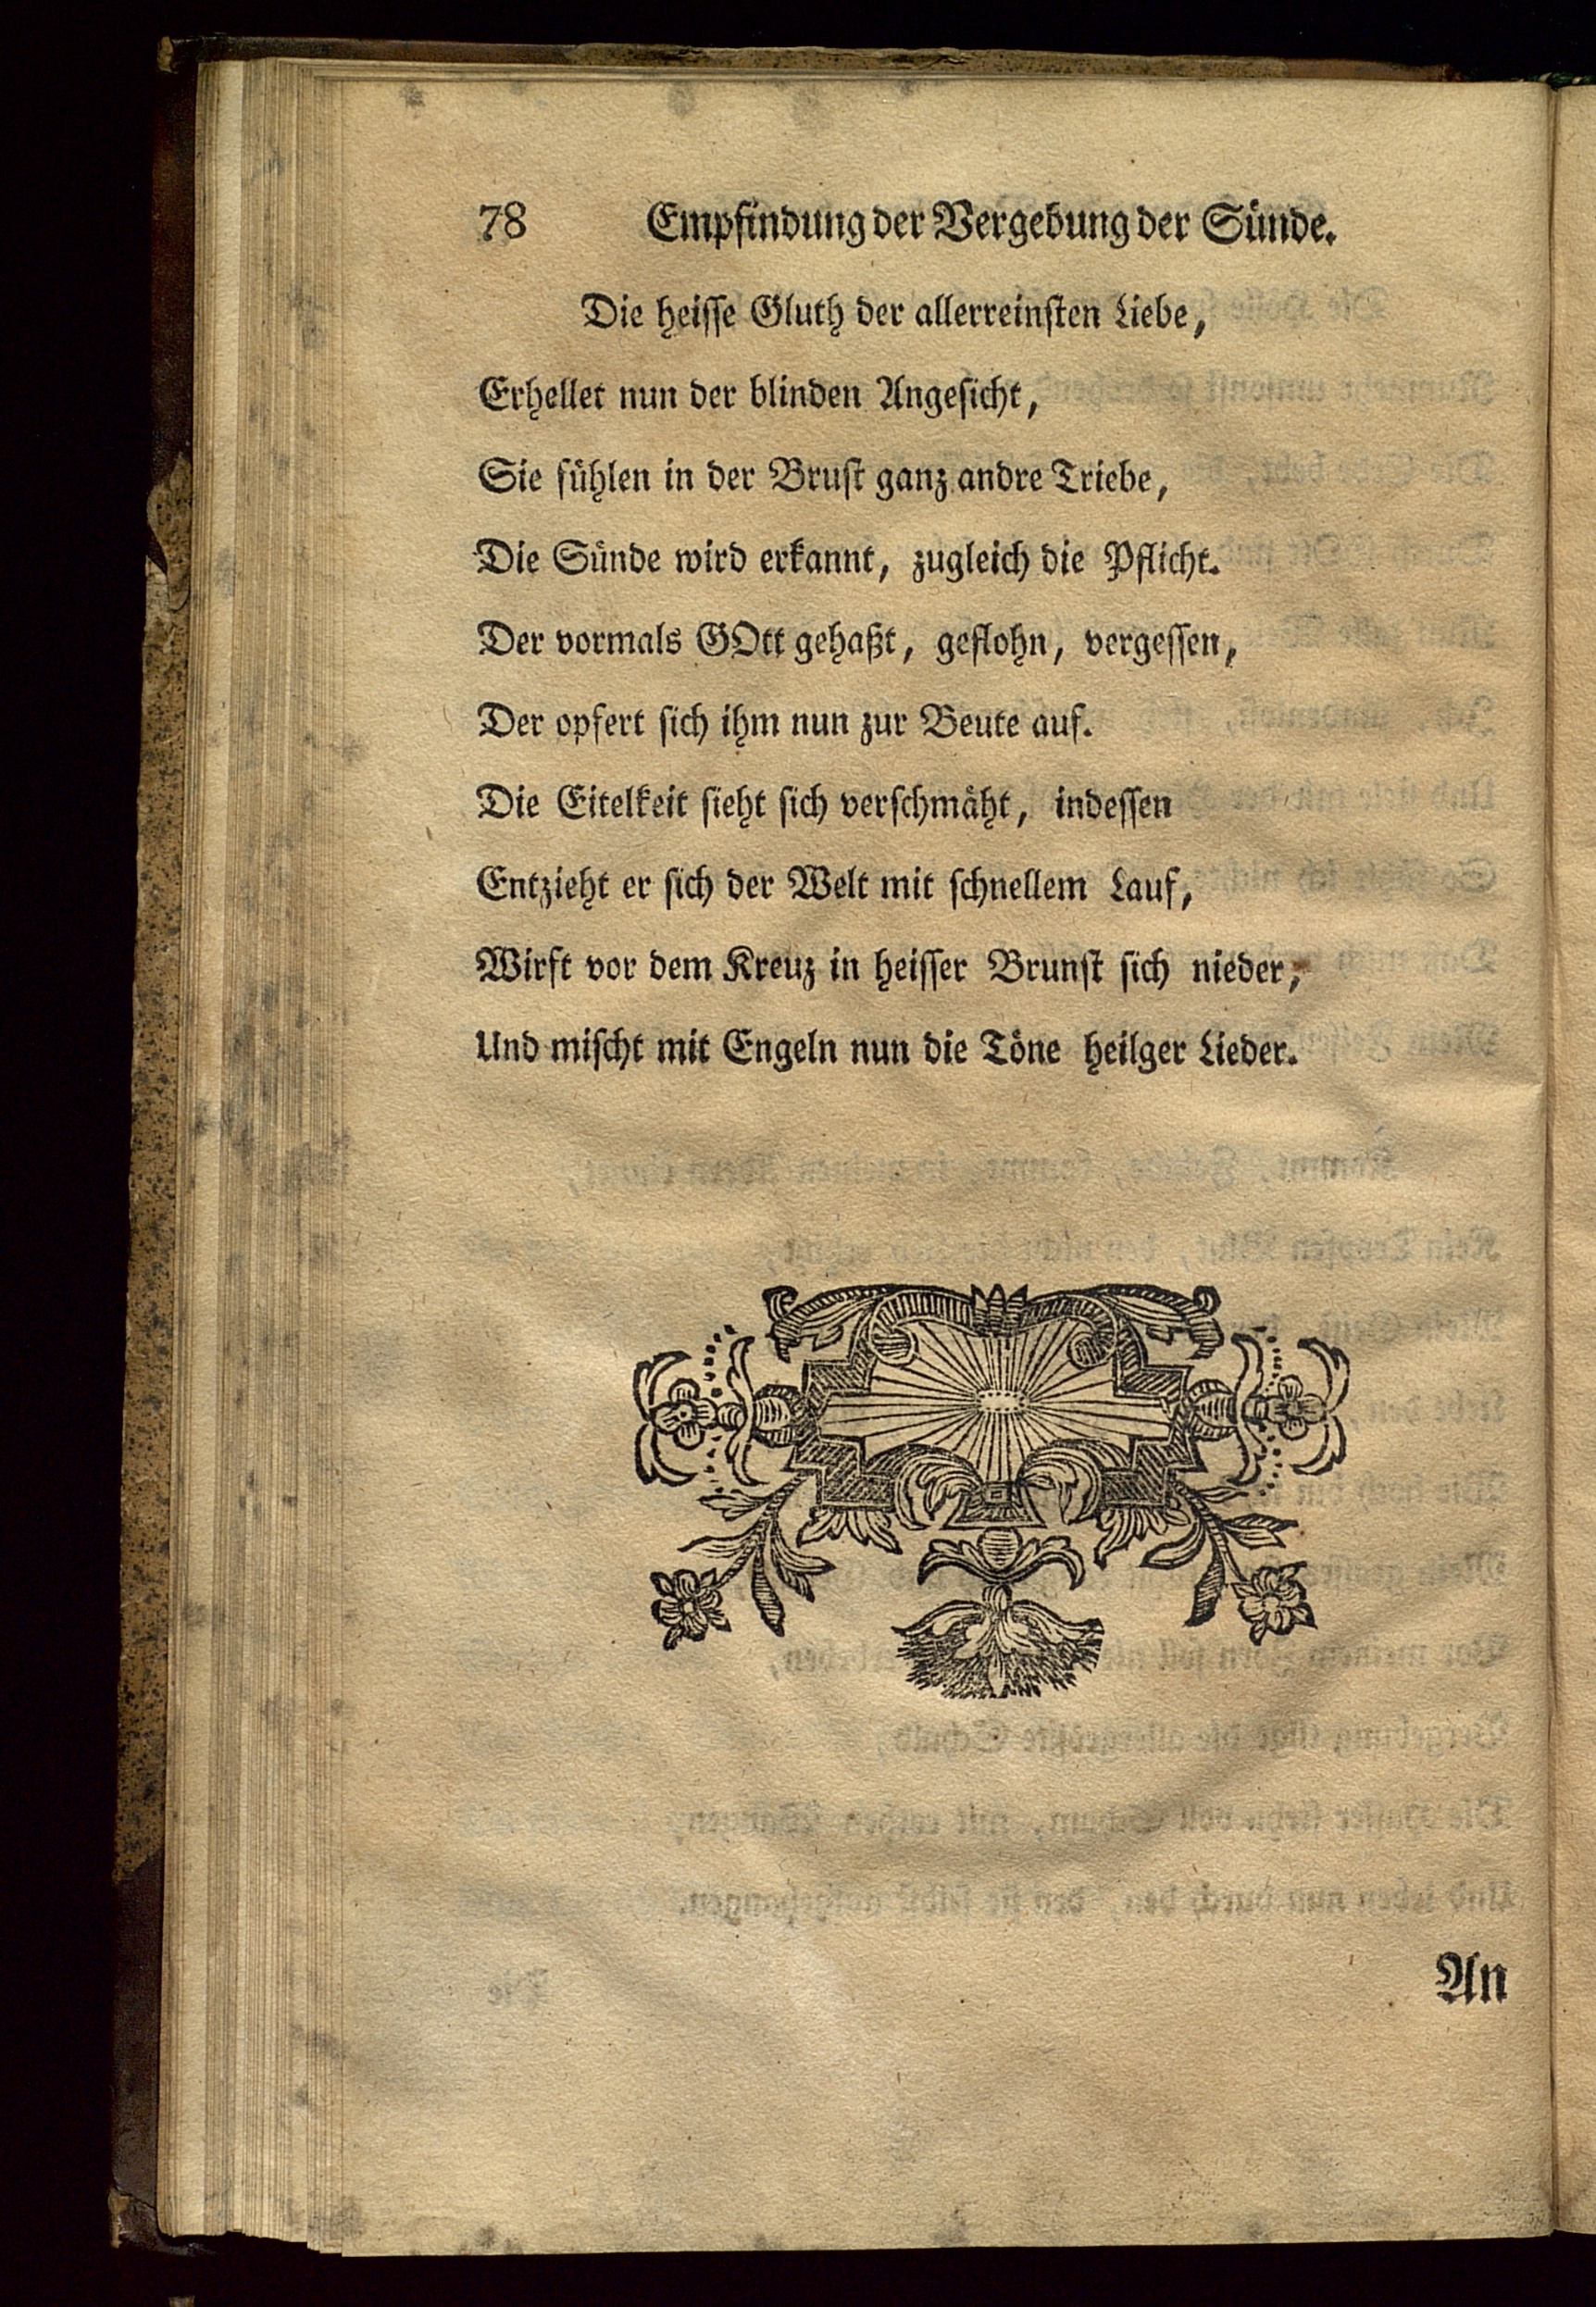 78 Empfindung der Vergebung der Sünde.
Die heisse Gluth der allerreinsten Liebe,
Erhellet nun der blinden Angesicht,
Sie fühlen in der Brust ganz andre Triebe,
Die Sünde wird erkannt, zugleich die Pflicht.
Der vormals GOtt gehaßt, geflohn, vergessen,
Der opfert sich ihm nun zur Beute auf.
Die Eitelkeit sieht sich verschmäht, indessen
Entzieht er sich der Welt mit schnellem Lauf,
Wirft vor dem Kreuz in heisser Brunst sich nieder,
Und mischt mit Engeln nun die Töne heilger Lieder.
An